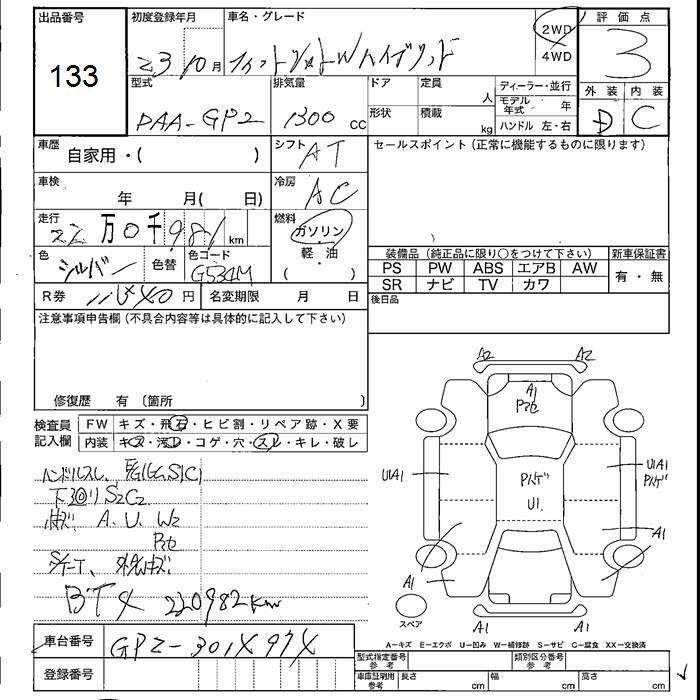 出品番号
133
初度登録年月
23年10月
車名・グレード
フィットシャトルWハイブリッド
2WD
4WD
評価点
3
型式
DAA-GP2
排気量
1300 cc
ドア
定員
人
形状
積載
kg
ディーラー・並行
モデル年式 年
ハンドル 左・右
外装 内装
D C
車歴
自家用・( )
シフト
AT
セールスポイント(正常に機能するものに限ります)
車検
年 月( 日)
冷房
AC
走行
22万0千981 km
燃料
ガソリン
軽・油
( )
色
シルバー
色替
色コード
装備品(純正品に限り○をつけて下さい)
新車保証書
PS PW ABS エアB AW
有・無
SR ナビ TV カワ
R券
円
名変期限 月 日
後日品
注意事項申告欄(不具合内容等は具体的に記入して下さい)
修復歴 有 〔箇所 〕
検査員記入欄
FW キズ・飛石・ヒビ割・リペア跡・X要
内装 キズ・汚レ・コゲ・穴・スレ・キレ・破レ
ハンドルスレ、
下回りS2C2
A、U、W2
BT〆 220982km
A2 A2
A1
U1
U1A1
U1A1
A1
A1
スペア
A1 A1
A-キズ E-エクボ U-凹み W-補修跡 S-サビ C-腐食 XX-交換済
車台番号
登録番号
型式指定番号 参考
類別区分番号 参考
車庫証明用 参考
長さ cm
幅 cm
高さ cm